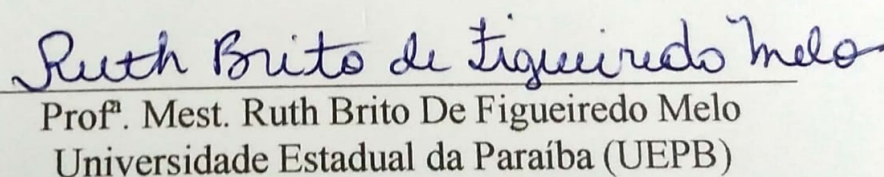 Ruth Brito de Figueiredo Melo
Profª. Mest. Ruth Brito De Figueiredo Melo
Universidade Estadual da Paraíba (UEPB)